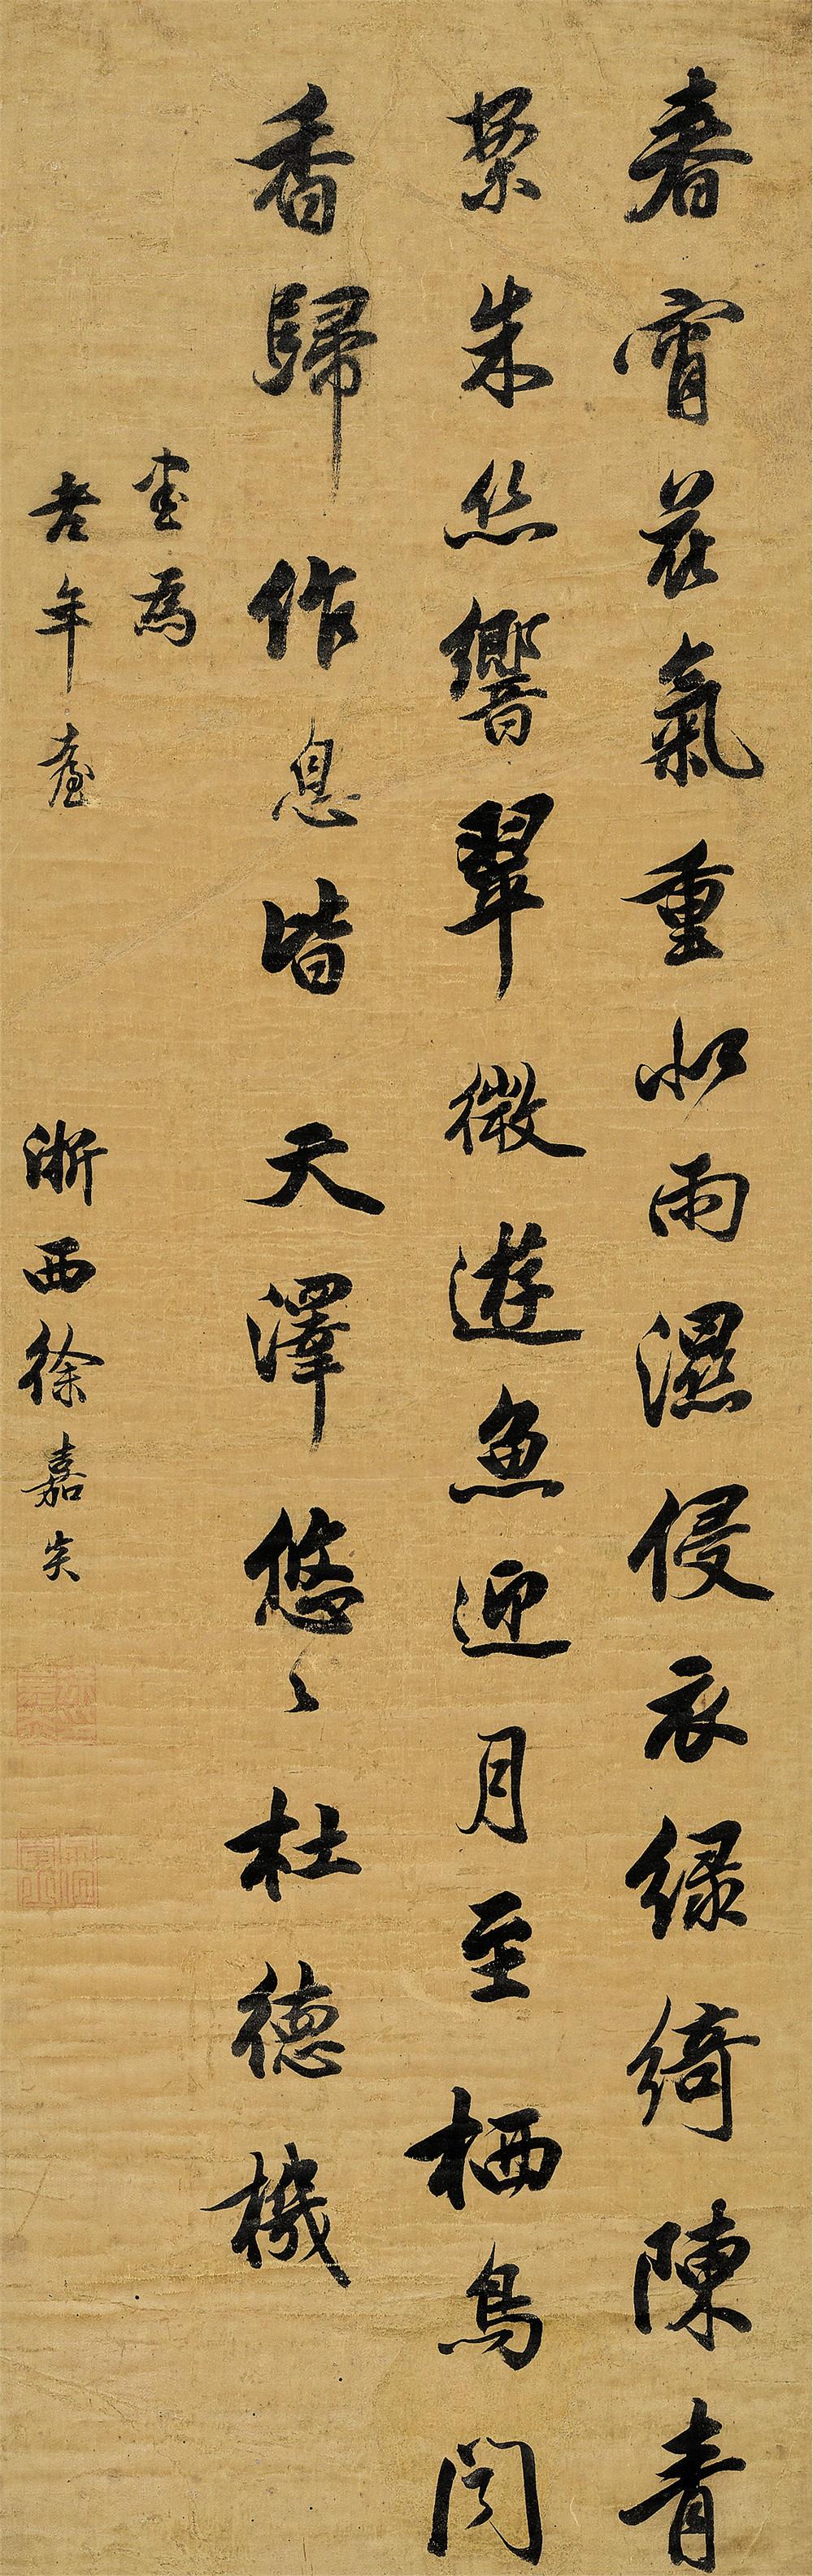 春宵花氣重似雨濕侵衣綠綺陳青
案朱絲響翠微遊魚迎月至栖鳥聞
香歸作息皆天澤悠々杜德機
書為
老年臺 浙西徐嘉炎